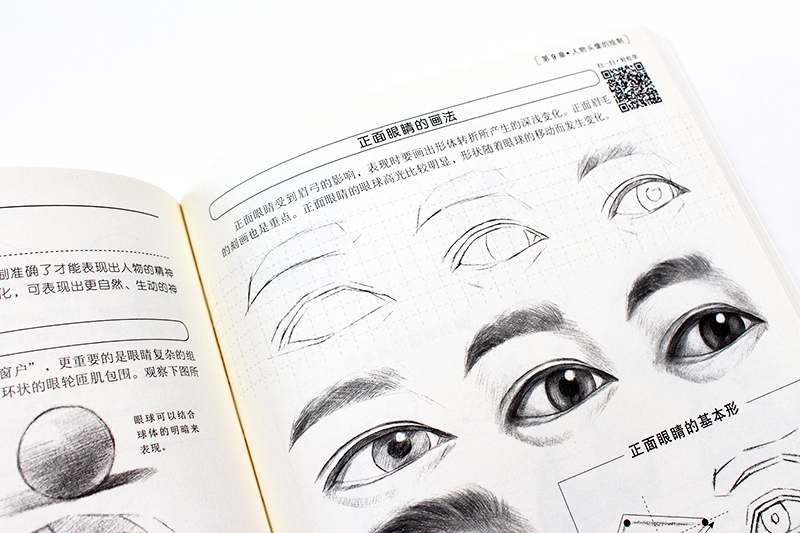 制准确了才能表现出人物的精神
化，可表现出更自然、生动的神
窗户”，更重要的是眼睛复杂的组
环状的眼轮匝肌包围。观察下图所
眼球可以结合
球体的明暗来
表现。
[第9章•人物头像的绘制]
扫一扫•轻松学
正面眼睛的画法
正面眼睛受到眉弓的影响，表现时要画出形体转折所产生的深浅变化。正面眉毛
的刻画也是重点。正面眼睛的眼球高光比较明显，形状随着眼球的移动而发生变化。
正面眼睛的基本形